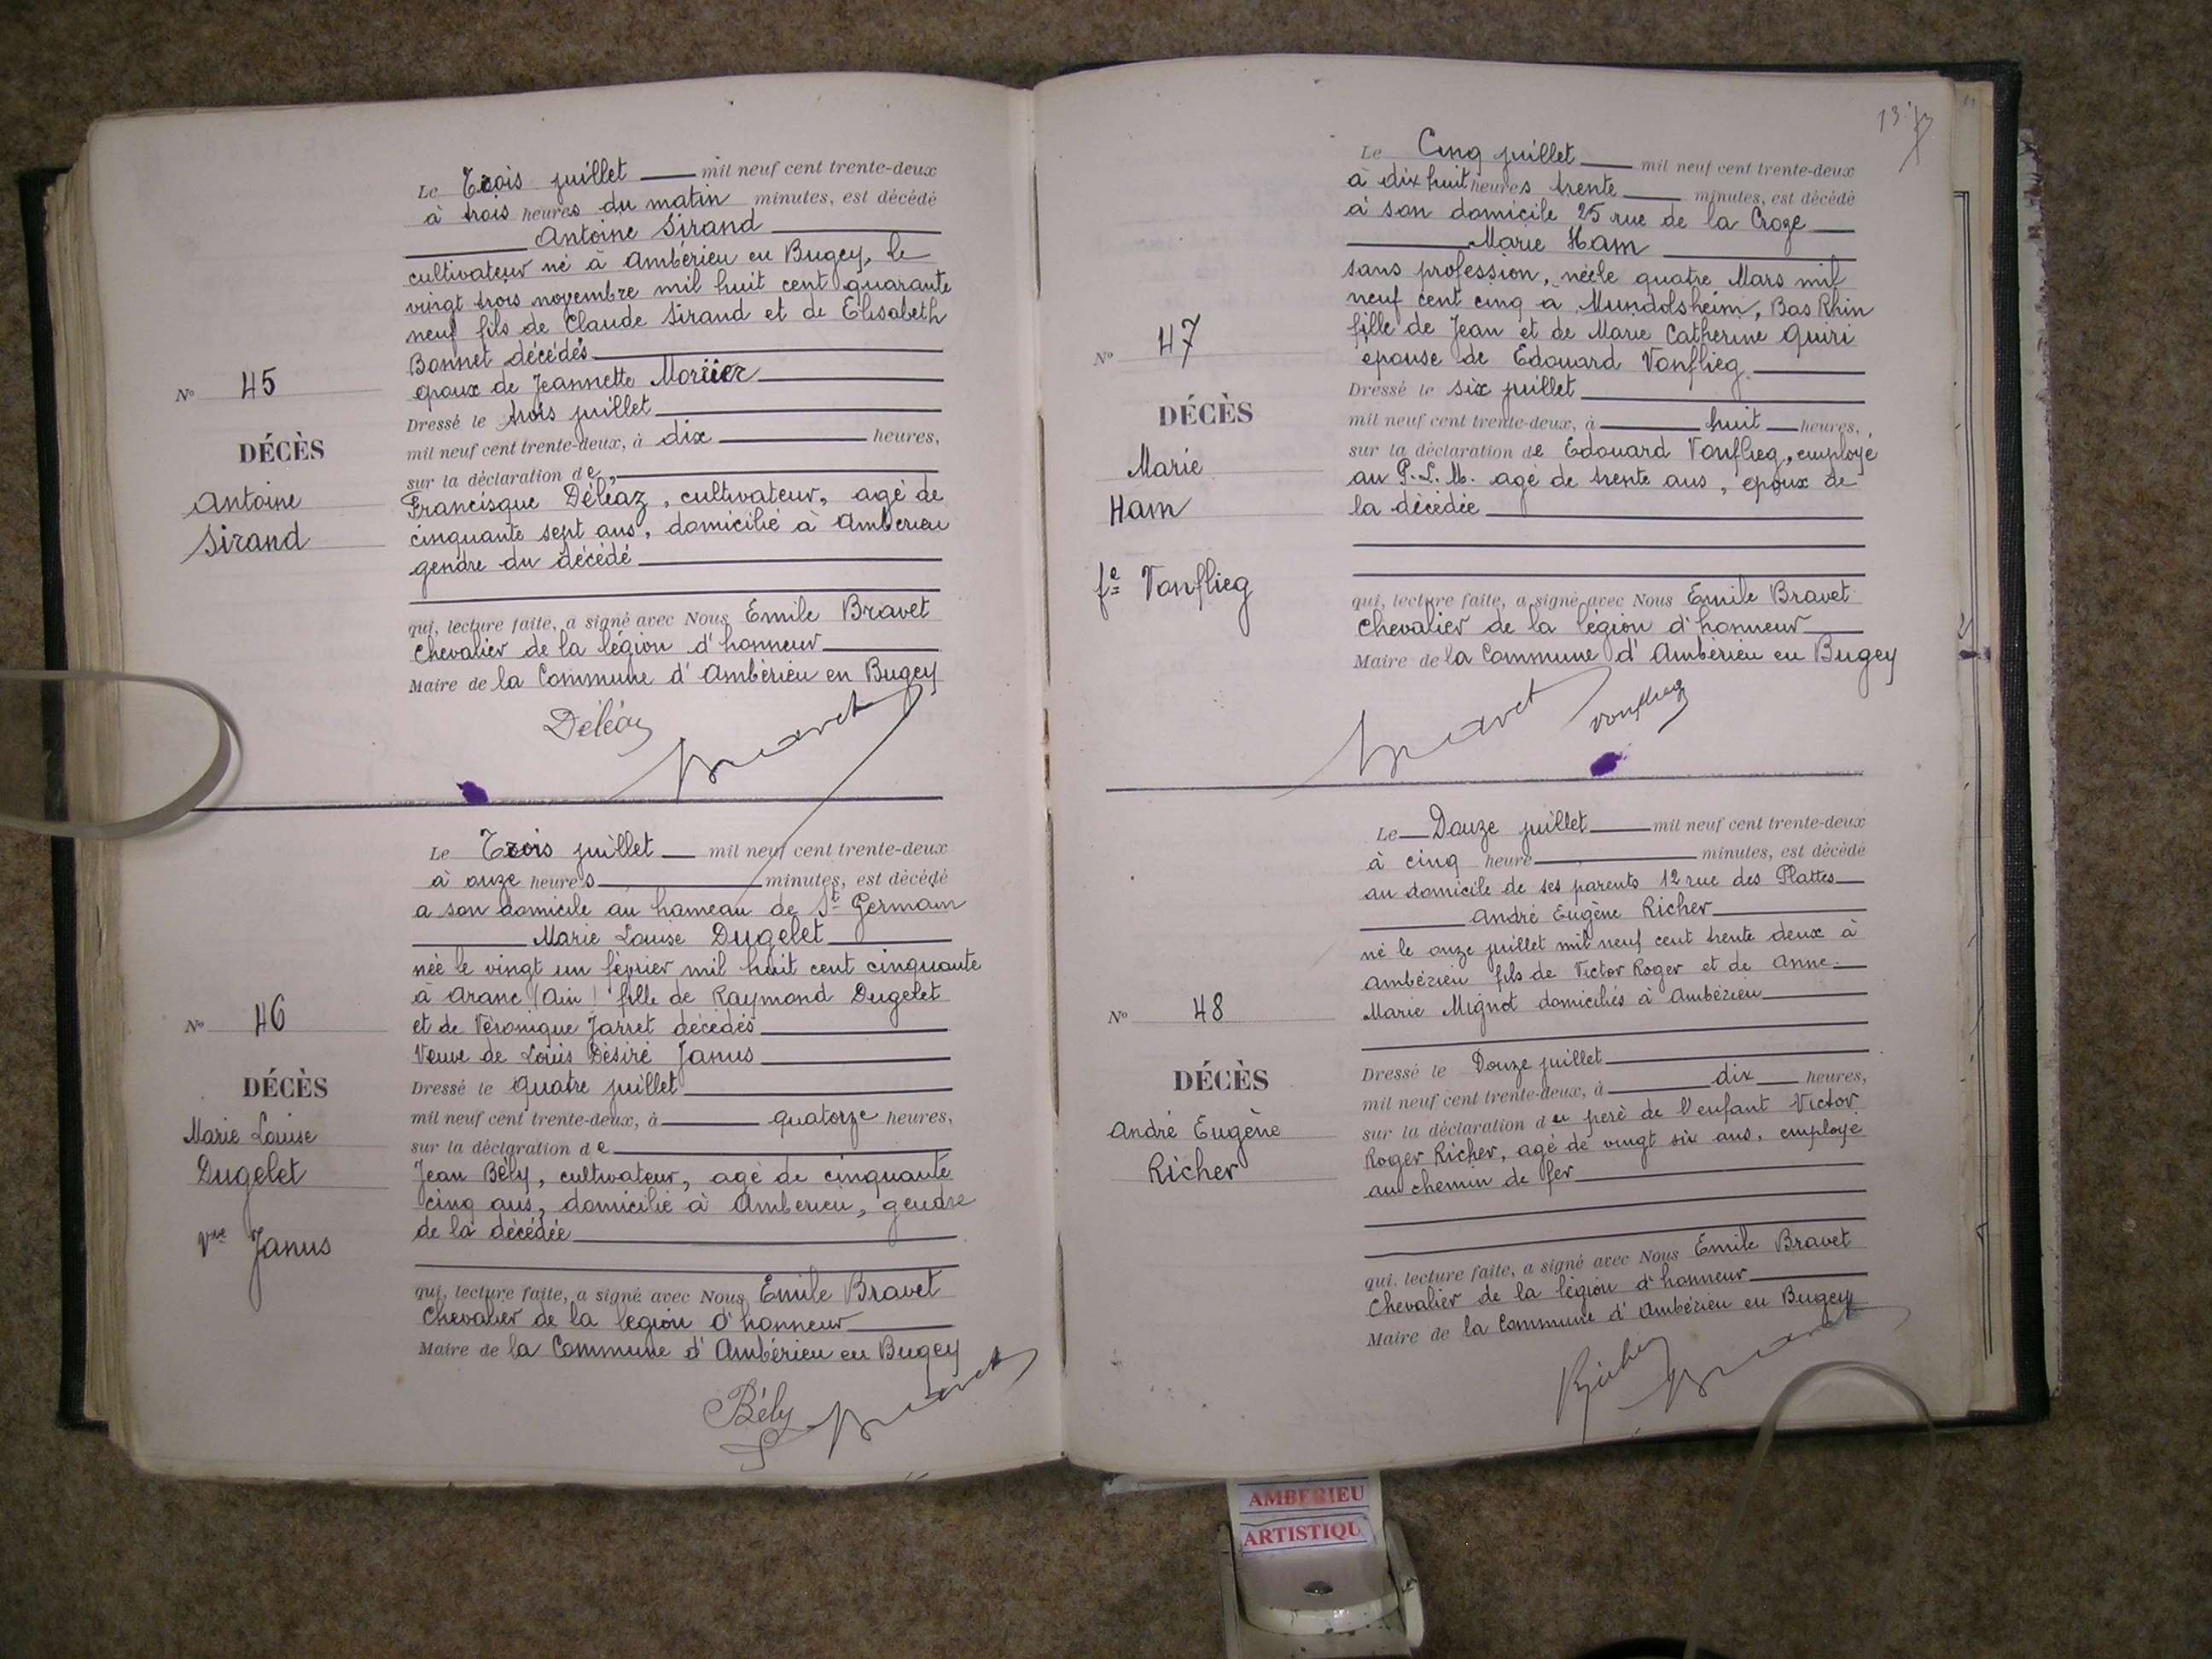 Le Trois juillet mil neuf cent trente-deux
à trois heures du matin minutes, est décédé
Antoine Sirand
cultivateur né à Ambérieu en Bugey, le
vingt trois novembre mil huit cent quarante
neuf fils de Claude Sirand et de Elisabeth
Bonnet décédés
époux de Jeannette Morïier
Dressé le trois juillet
mil neuf cent trente-deux, à dix heures,
sur la déclaration de,
Francisque Déléaz, cultivateur, agé de
cinquante sept ans, domicilié à Ambérieu
gendre du décédé
qui, lecture faite, a signé avec Nous Emile Bravet
Chevalier de la légion d'honneur
Maire de la Commune d'Ambérieu en Bugey
Déléaz
Bravet
N° 45
DÉCÈS
Antoine
Sirand
Le Trois juillet mil neuf cent trente-deux
à onze heures minutes, est décédé
a son domicile au hameau de St Germain
Marie Louise Dugelet
née le vingt un février mil huit cent cinquante
à Aranc (Ain) fille de Raymond Dugelet
et de Véronique Jarret décédés
Veuve de Louis Désiré Janus
Dressé le quatre juillet
mil neuf cent trente-deux, à quatorze heures,
sur la déclaration de
Jean Bély, cultivateur, agé de cinquante
cinq ans, domicilié à Ambérieu, gendre
de la décédée
qui, lecture faite, a signé avec Nous Emile Bravet
Chevalier de la légion d'honneur
Maire de la Commune d'Ambérieu en Bugey
Bély
Bravet
N° 46
DÉCÈS
Marie Louise
Dugelet
Vve Janus
13
Le Cinq juillet mil neuf cent trente-deux
à dix huit heures trente minutes, est décédé
à son domicile 25 rue de la Croze
Marie Ham
sans profession, née le quatre Mars mil
neuf cent cinq a Mundolsheim, Bas Rhin
fille de Jean et de Marie Catherine Quiri
epouse de Edouard Vonflieg
Dressé le six juillet
mil neuf cent trente-deux, à huit heures,
sur la déclaration de Edouard Vonflieg, employé
au P.L.M. agé de trente ans, époux de
la décédée
qui, lecture faite, a signé avec Nous Emile Bravet
Chevalier de la légion d'honneur
Maire de la Commune d'Ambérieu en Bugey
Bravet
Vonflieg
N° 47
DÉCÈS
Marie
Ham
fe Vonflieg
Le Douze juillet mil neuf cent trente-deux
à cinq heure minutes, est décédé
au domicile de ses parents 12 rue des Plattes
André Eugène Richer
né le onze juillet mil neuf cent trente deux à
Ambérieu fils de Victor Roger et de Anne
Marie Mignot domiciliés à Ambérieu
Dressé le Douze juillet
mil neuf cent trente-deux, à dix heures,
sur la déclaration du père de l'enfant Victor
Roger Richer, agé de vingt six ans, employé
au chemin de fer
qui, lecture faite, a signé avec Nous Emile Bravet
Chevalier de la légion d'honneur
Maire de la Commune d'Ambérieu en Bugey
Richer
Bravet
N° 48
DÉCÈS
André Eugène
Richer
AMBERIEU
ARTISTIQU